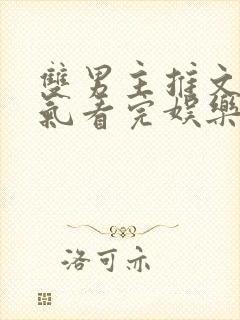 雙男主推文
氣看完娛樂
洛可亦